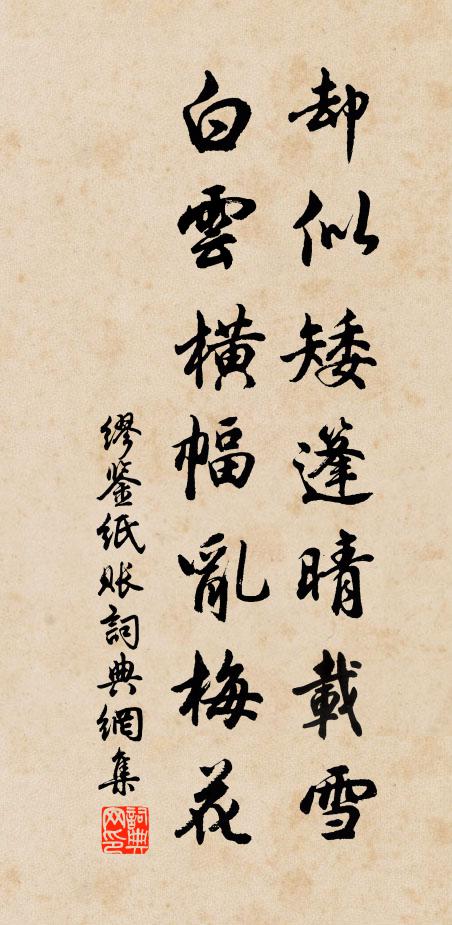 却似矮篷晴載雪
白雲橫幅亂梅花
繆鉴纸账詞典網集
詞典网印